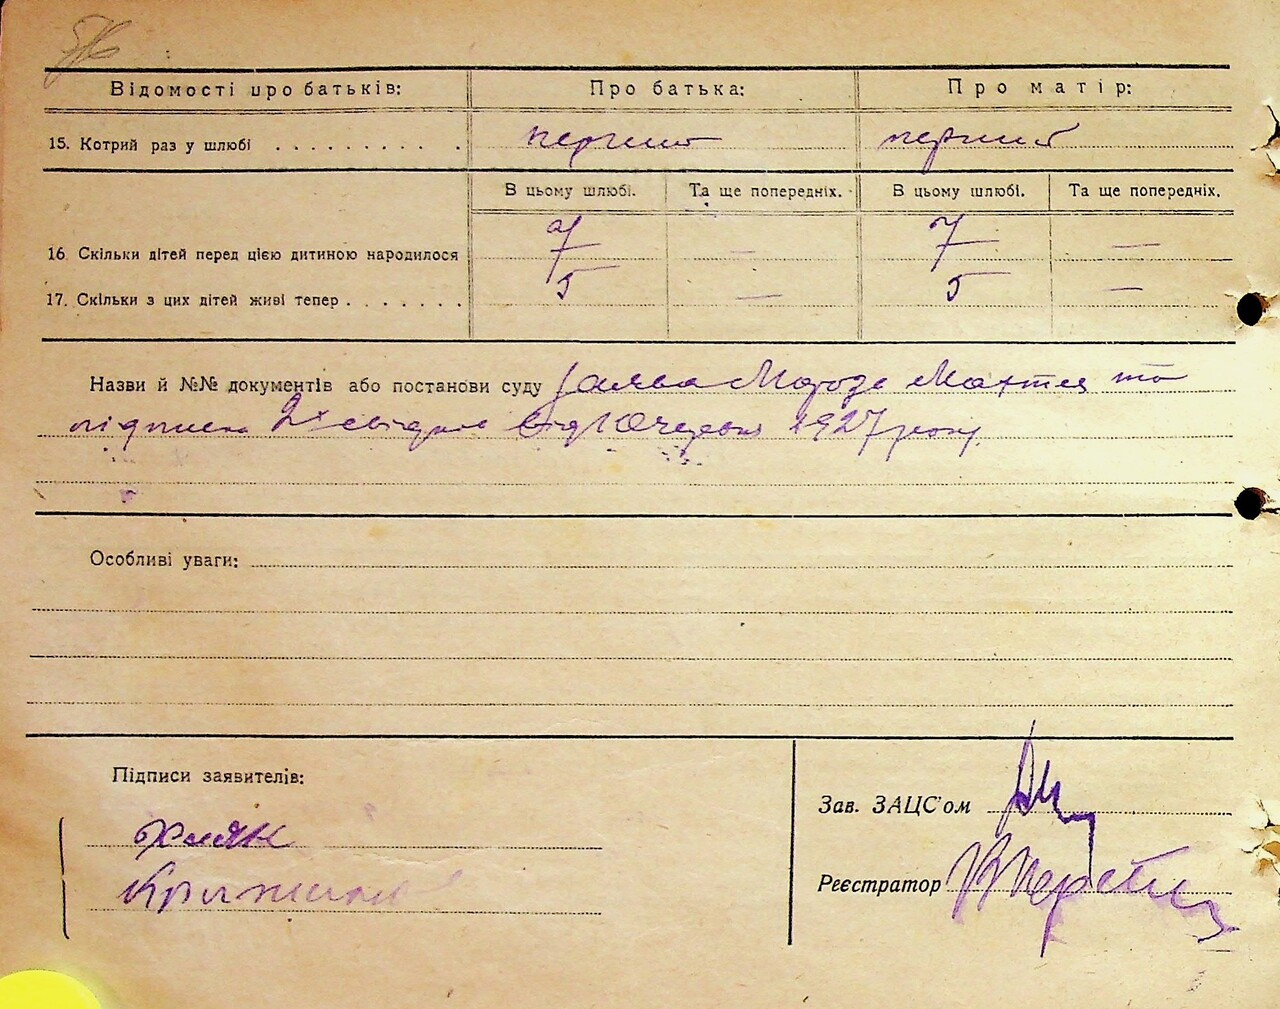 Відомості про батьків: Про батька: Про матір:
15. Котрий раз у шлюбі . . . . . . . . . . перший перший
В цьому шлюбі. Та ще попередніх. В цьому шлюбі. Та ще попередніх.
16. Скільки дітей перед цією дитиною народилося 7 — 7 —
17. Скільки з цих дітей живі тепер . . . . . . . 5 — 5 —
Назви й №№ документів або постанови суду заява та
підписка 2х свідків від 10 червня 1927 року.
Особливі уваги:
Підписи заявителів:
Зав. ЗАЦС'ом
Хижняк
Реєстратор